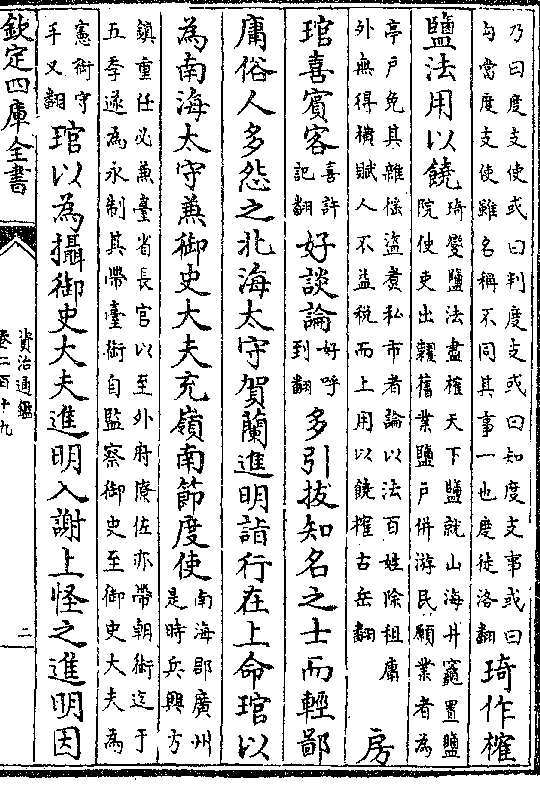 乃曰度支使或曰判度支或曰知度支事或曰
勾當度支使雖名稱不同其事一也度徒洛翻
琦作榷
鹽法用以饒
琦變鹽法盡榷天下鹽就山海井竈置鹽
院使吏出糶舊業鹽戶併游民願業者為
亭戶免其雜徭盜煮私市者論以法百姓除租庸
外無得橫賦人不益稅而上用以饒榷古岳翻
房
琯喜賓客
喜許
記翻
好談論
好呼
到翻
多引拔知名之士而輕鄙
庸俗人多怨之北海太守賀蘭進明詣行在上命琯以
為南海太守兼御史大夫充嶺南節度使
南海郡廣州
是時兵興方
鎮重任必兼臺省長官以至外府僚佐亦帶朝銜迄于
五季遂為永制其帶臺銜自監察御史至御史大夫為
憲銜守
手又翻
琯以為攝御史大夫進明入謝上怪之進明因
欽定四庫全書
資治通鑑
卷二百十九
二